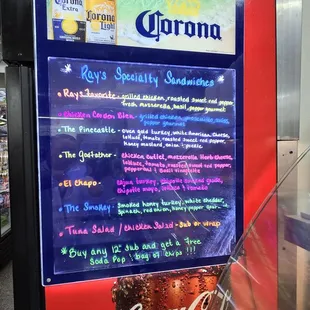 Corona
Extra
Corona
Light
Corona
Ray's Specialty Sandwiches
• Ray's Favorite - grilled chicken, roasted sweet red pepper,
fresh mozzarella, basil, pepper gourmet
• Chicken Cordon Bleu - grilled chicken,
pepper gourmet
• The Pinecastle - oven gold turkey, white American cheese,
lettuce, tomato, roasted sweet red pepper,
honey mustard, onion + pickle
• The Godfather - chicken cutlet, mozzarella, herb cheese,
lettuce, tomato, roasted sweet red pepper,
balsamic vinaigrette
• El Chapo - turkey, chipotle gouda,
chipotle mayo, lettuce + tomato
• The Smokey - Smoked honey turkey, white cheddar,
spinach, red onion, honey pepper
• Tuna Salad / chicken Salad - Sub or wrap
*Buy any 12" sub and get a Free
Soda Pop + bag of chips !!!